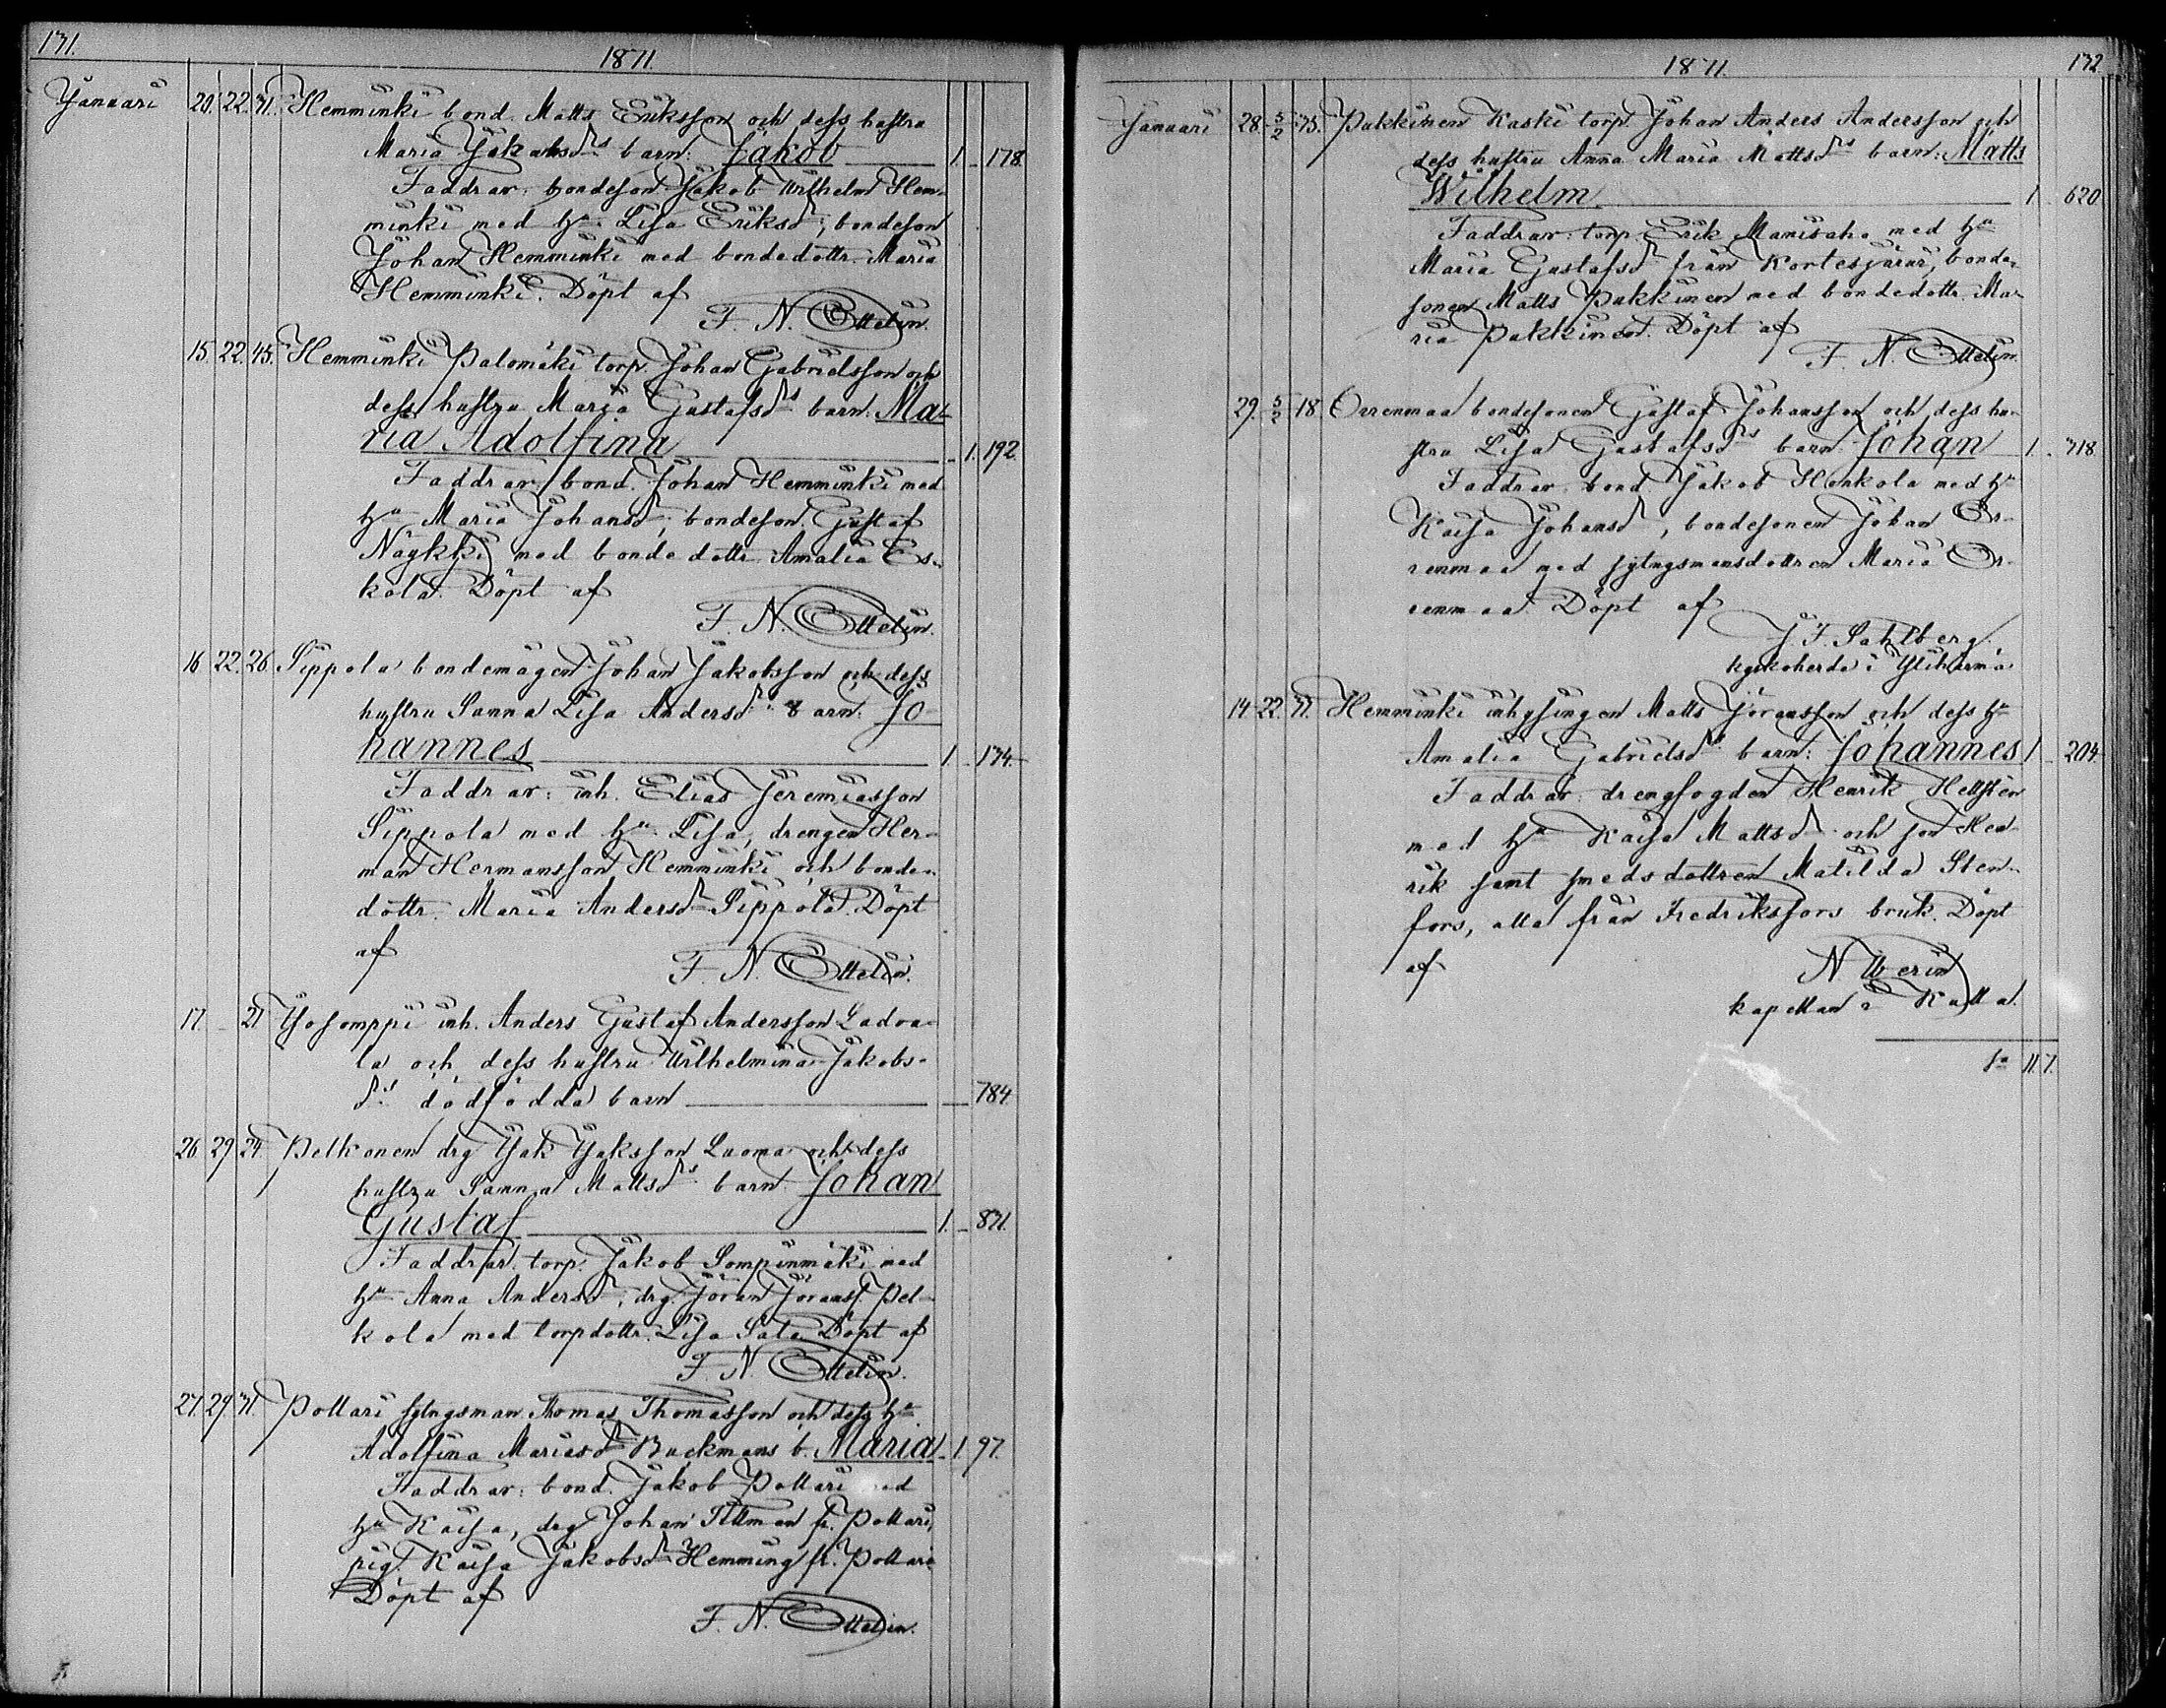 131.
1871.
Januari 20. 22. 31. Hemminki bond. Matts Eriksson och dess hustru
Maria Jakobsdrs barn: Jakob 1. 178.
Faddrar: bondeson Jakob Wilhelm Hem-
minki med hu Lisa Eriksdr, bondeson
Johan Hemminki med bondedottr. Maria
Hemminki. Döpt af
F. N. Ottelin.
15. 22. 45. Hemminki Palomäki torp. Johan Gabrielsson och
dess hustru Maria Gustafsdrs barn: Ma-
ria Adolfina 1. 192.
Faddrar: bond. Johan Hemminki med
hu Maria Johansdr, bondeson Gustaf
Näykki med bondedottr. Amalia Es-
kola. Döpt af
F. N. Ottelin.
16 22. 26. Sippola bondemågen Johan Jakobsson och dess
hustru Sanna Lisa Andersdrs barn: Jo-
hannes 1. 134.
Faddrar: inh. Elias Jeremiasson
Sippola med hu Lisa, drengen Her-
man Hermansson Hemminki och bonde-
dottr. Maria Andersdr Sippola. Döpt
af
F. N. Ottelin.
17. 21 inh. Anders Gustaf Andersson Ladva-
la och dess hustru Wilhelmina Jakobs-
drs dödfödda barn 784.
26 29 24 Pelkonen drg Jak Jaksson Luoma och dess
hustru Sanna Mattsdrs barn: Johan
Gustaf 1. 831.
Faddrar: torp. Jakob Sompinmäki med
hu Anna Andersdr, drg. Jöran Göranss. Pel-
kola med torpdottr. Lisa Sata. Döpt af
F. N. Ottelin.
27. 29. 31. Pollari sytngsman Thomas Thomasson och dess hu
Adolfina Mariasdr Backmans b. Maria 1. 97.
Faddrar: bond. Jakob Pollari med
hu Kaisa, drg Johan Tillman fr. Pollari,
pig. Kaisa Jakobsdr Hemming fr. Pollari
Döpt af
F. N. Ottelin.
1871. 132
Januari 28. 5/2 35. Pukkinen Kaski torp. Johan Anders Andersson och
dess hustru Anna Maria Mattsdrs barn: Matts
Wilhelm. 1 620
Faddrar: torp. Erik Mamisaho med hu
Maria Gustafsdr från Kortesjärvi, bonde-
sonen Matts Pukkinen med bondedottr. Ma-
ria Pukkinen. Döpt af
F. N. Ottelin.
29. 5/2 18. Orrenmaa bondesonen Gustaf Johansson och dess hu-
stru Lisa Gustafsdrs barn Johan 1. 718
Faddrar: bond Jakob Honkola med hu
Kaisa Johansdr, bondesonen Johan Or-
renmaa med sytngsmansdottren Maria Or-
renmaa. Döpt af
J. F. Sahlberg.
kyrkoherde i Ylihärmä
14 22. 31. Hemminki inhysingen Matts Göransson och dess hu
Amalia Gabrielsdrs barn: Johannes 1 204.
Faddrar: drengfogden Henrik Hellstén
med hu Kaisa Mattsdr och son Hen-
rik samt smedsdottren Matilda Sten-
fors, alla från Fredriksfors bruk. Döpt
af
kapellan
Sa 11. 7.